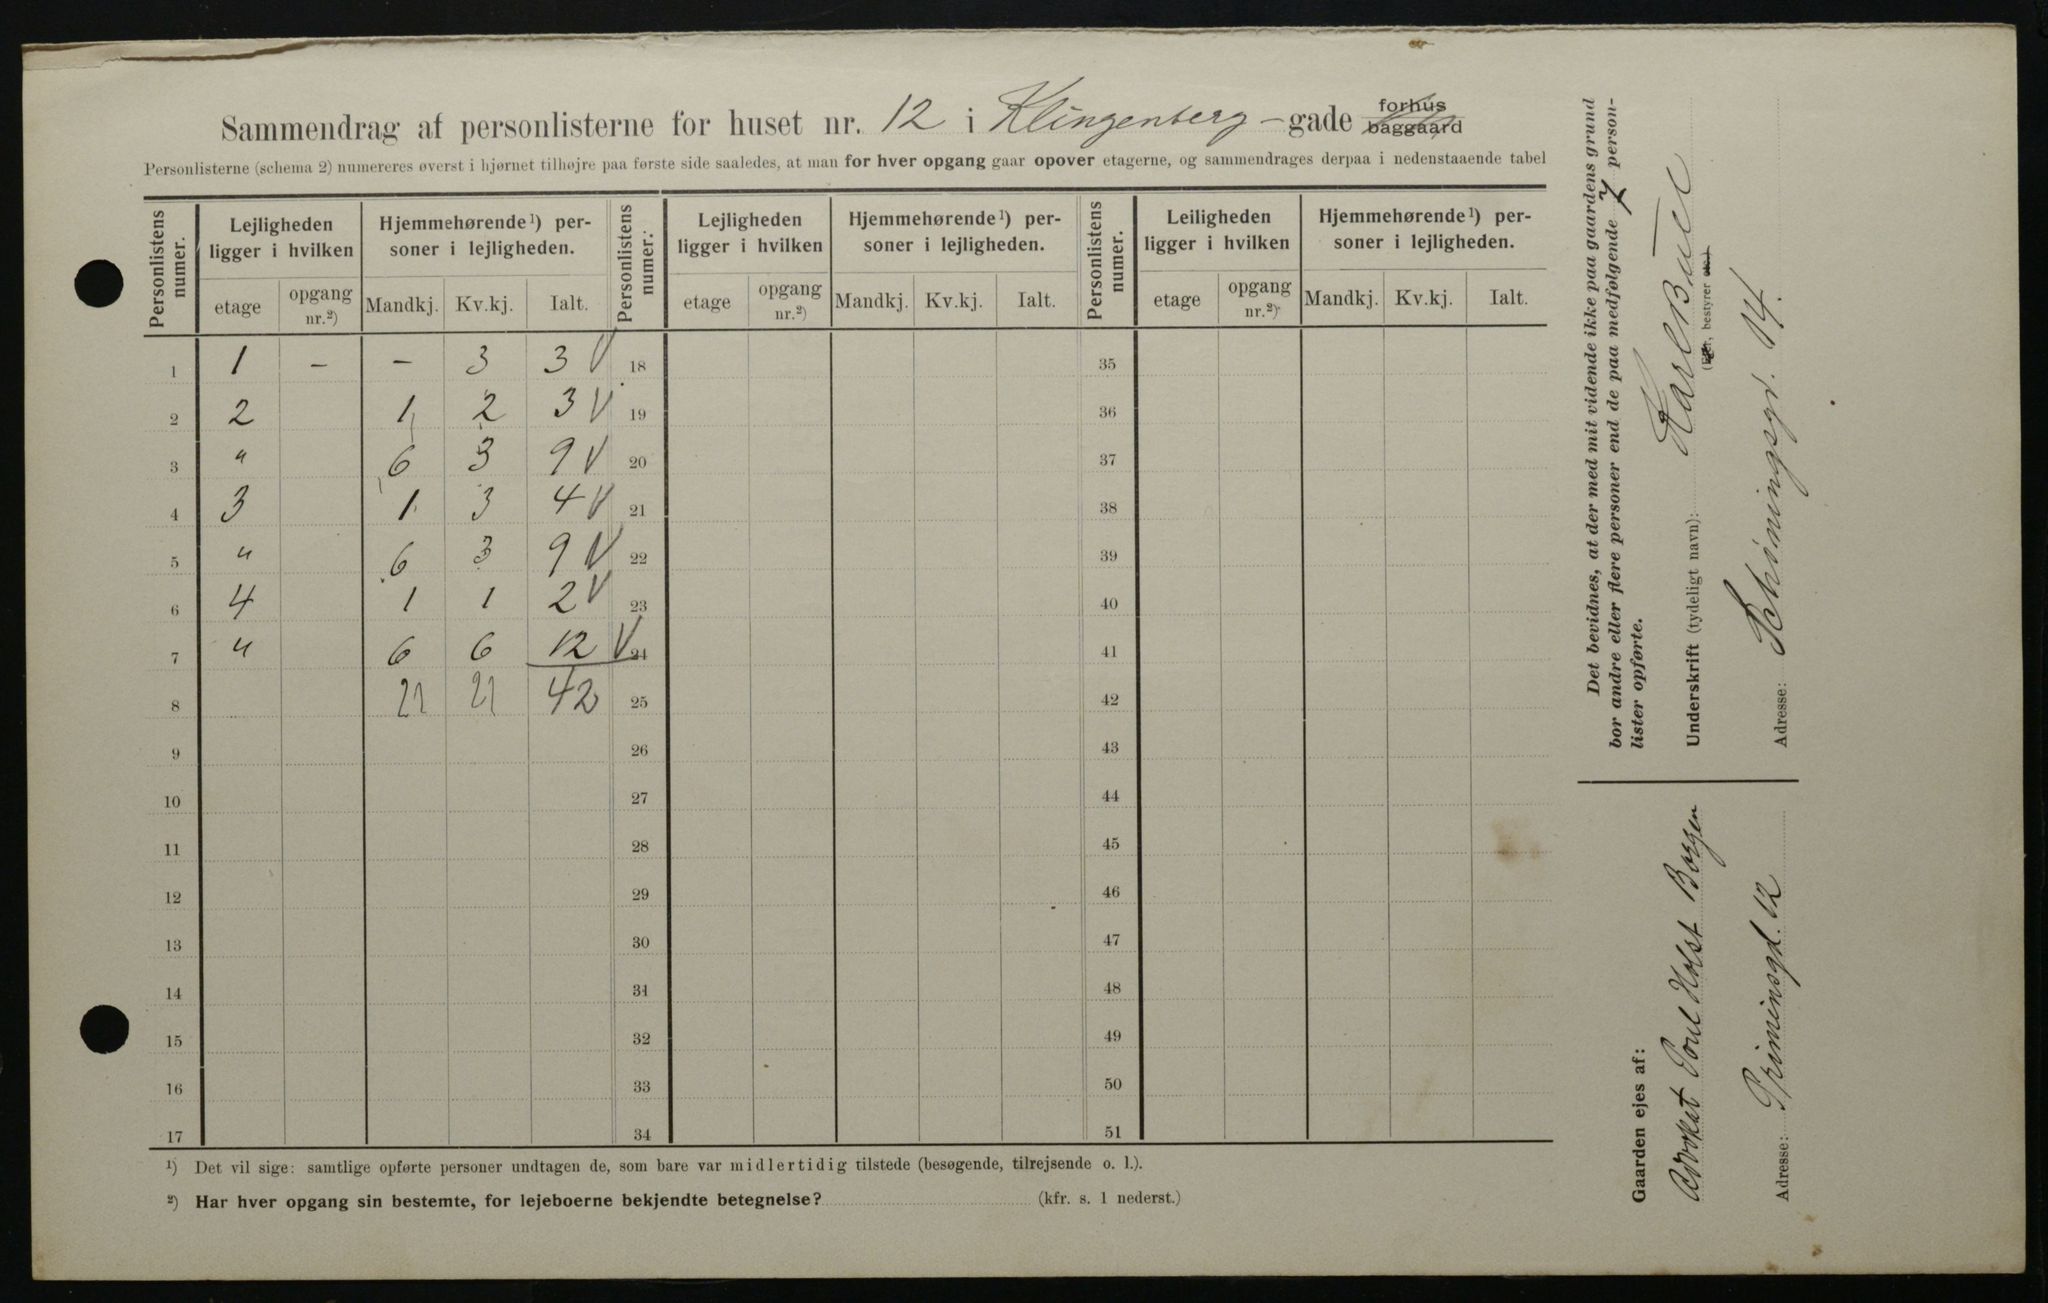 Sammendrag af personlisterne for huset nr. 12 i Klingenberg-gade forhus
baggaard
Personlisterne (schema 2) numereres øverst i hjørnet tilhøjre paa første side saaledes, at man for hver opgang gaar opover etagerne, og sammendrages derpaa i nedenstaaende tabel
Personlistens numer. Lejligheden ligger i hvilken Hjemmehørende¹) personer i lejligheden. Personlistens numer. Lejligheden ligger i hvilken Hjemmehørende¹) personer i lejligheden. Personlistens numer. Leiligheden ligger i hvilken Hjemmehørende¹) personer i lejligheden.
etage opgang nr.²) Mandkj. Kv.kj. Ialt. etage opgang nr.²) Mandkj. Kv.kj. Ialt. etage opgang nr.²) Mandkj. Kv.kj. Ialt.
1 1 – – 3 3 V 18 35
2 2 1 2 3 V 19 36
3 " 6 3 9 V 20 37
4 3 1 3 4 V 21 38
5 " 6 3 9 V 22 39
6 4 1 1 2 V 23 40
7 " 6 6 12 V 24 41
8 21 21 42 25 42
9 26 43
10 27 44
11 28 45
12 29 46
13 30 47
14 31 48
15 32 49
16 33 50
17 34 51
¹) Det vil sige: samtlige opførte personer undtagen de, som bare var midlertidig tilstede (besøgende, tilrejsende o. l.).
²) Har hver opgang sin bestemte, for lejeboerne bekjendte betegnelse? (kfr. s. 1 nederst.)
Det bevidnes, at der med mit vidende ikke paa gaardens grund
bor andre eller flere personer end de paa medfølgende 7 person-
lister opførte.
Underskrift (tydeligt navn): Karl
(Ejer, bestyrer etc.)
Adresse: Schøningsgd. 14.
Gaarden ejes af:
Advokat Poul Holst Borgen
Adresse: Prinsensgd. 12